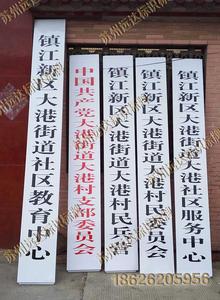 镇江新区大港街道社区教育中心
中国共产党大港街道大港村支部委员会
镇江新区大港街道大港村民兵营
镇江新区大港街道大港村民委员会
镇江新区大港街道大港村社区服务中心
18626205956